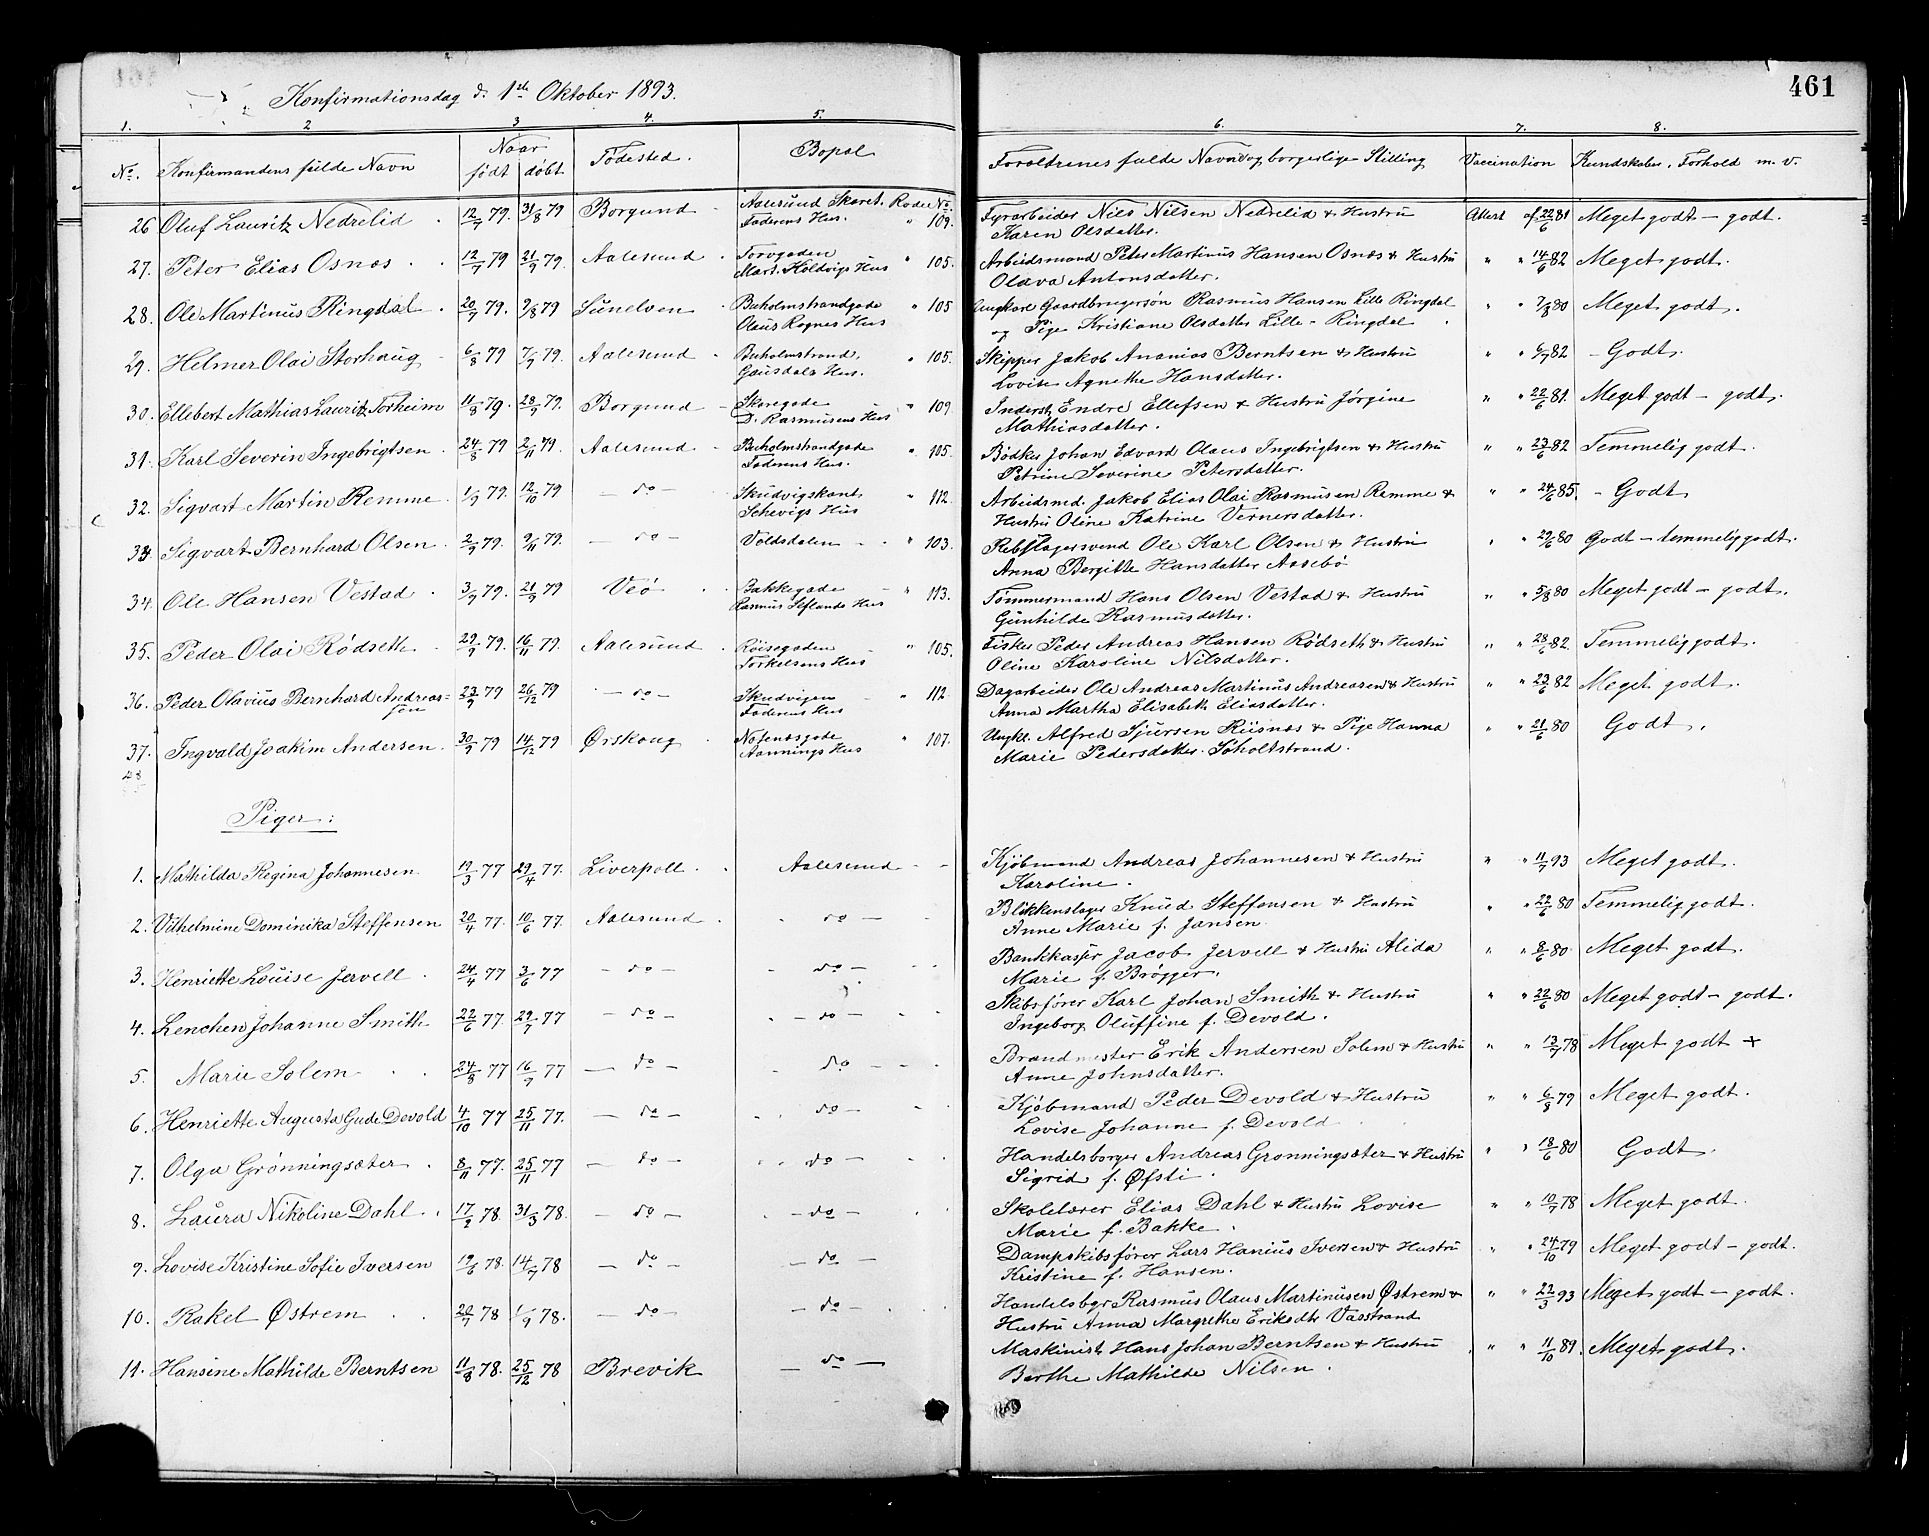 Konfirmationsdag d. 1ste Oktober 1893.
461
1. 2 3 4. 5. 6. 7. 8.
No. Konfirmandens fulde Navn Naar født døbt Fødested. Bopæl Forældrenes fulde Navn og borgerlige Stilling Vaccination Kundskaber, Forhold m. v.
26 Oluf Lauritz Nedrelid 12/7 79. 31/8 79 Borgund Aalesund Skaret. Rode No. Fyrarbeider Nils Nilsen Nedrelid & Hustru Attest af 22/6 81 Meget godt – godt.
Faderens Hus. " 109. Karen Olsdatter.
27. Peter Elias Osnes 12/7 79 21/9 79. Aalesund Torvgaden Arbeidsmand Peter Martinus Hansen Osnes & Hustru " " 14/6 82 Meget godt.
Mart. Holdvigs Hus " 105. Olava Antonsdatter.
28. Ole Martinus Ringdal 20/7 79. 9/8 79 Sunelven Buholmstrandgade " 105 Ungkarl Gaardbrugersøn Rasmus Hansen Lille Ringdal " " 7/8 80 Meget godt.
Olaus Rognes Hus og Pige Kristiane Olsdatter Lille-Ringdal
29. Helmer Olai Storhaug 6/8 79 7/9 79. Aalesund Buholmstrand. " 105. Skipper Jakob Ananias Berntsen & Hustru " " 6/7 82 – Godt.
Gausdals Hus. Lovise Agnethe Hansdatter.
30. Ellebert Mathias Lauritz Torheim 11/8 79. 28/9 79. Borgund Skaregade " 109. Inderst Endre Ellefsen & Hustru Jørgine " " 22/6 81. Meget godt – godt.
D. Rasmusens Hus Mathiasdatter.
31. Karl Severin Ingebrigtsen 24/8 79 2/11 79. Aalesund Buholmstrandgade " 105. Bødker Johan Edvard Olaus Ingebrigtsen & Hustru " " 23/6 82 Temmelig godt.
Faderens Hus. Petrine Severine Petersdatter.
32. Sigvart Martin Remme 1/9 79. 12/10 79 – do – Skudvigskant. " 112. Arbeidsmd. Jakob Elias Olai Rasmusen Remme & " " 24/6 85. – Godt
Schevigs Hus Hustru Oline Katrine Vernersdatter.
33. Sigvart Bernhard Olsen 2/9 79. 9/11 79. – do – Voldsdalen " 103. Rebslagersvend Ole Karl Olsen & Hustru " " 29/6 80 Godt – temmelig godt.
Anna Bergitte Hansdatter Aasebø
34. Ole Hansen Vestad 3/9 79. 21/9 79 Veø Bakkegade " 113. Tømmermand Hans Olsen Vestad & Hustru " " 5/8 80 Meget godt – godt.
Rasmus Seflands Hus Gunhilde Rasmusdatter.
35. Peder Olai Rødseth 29/9 79. 16/11 79. Aalesund Røisegaden " 105. Fisker Peder Andreas Hansen Rødseth & Hustru " " 28/6 82. Temmelig godt.
Torkelsens Hus Oline Karoline Nilsdatter.
36. Peder Olavius Bernhard Andreas- 23/9 79 26/12 79 – do – Skudvigen " 112. Dagarbeider Ole Andreas Martinus Andreasen & Hustru " " 23/6 82 Meget godt.
sen Faderens Hus Anna Martha Elisabeth Eliasdatter.
37. Ingvald Joakim Andersen. 30/9 79 14/12 79 Ørskoug Nøfenæsgade " 107. Ungk. Alfred Sjursen Riisnes & Pige Hanna " " 21/6 80 Godt.
Aannings Hus Marie Pedersdatter Søholtstrand.
Piger:
1. Mathilda Regina Johannesen 19/3 77 29/4 77. Liverpoll Aalesund Kjøbmand Andreas Johannesen & Hustru " " 11/7 93 Meget godt.
Karoline.
2. Vilhelmine Dominika Steffensen 20/4 77. 10/6 77. Aalesund do – Blikkenslager Knud Steffensen & Hustru " " 22/6 80 Temmelig godt.
Anne Marie f. Jansen
3. Henriette Louise Jervell 24/4 77 3/6 77 – do – do – Bankkasser Jacob Jervell & Hustru Alida " " 8/6 80 Meget godt.
Marie f. Brøgger.
4. Lenchen Johanne Smith 22/6 77. 29/7 77 – do – – do – Skibsfører Karl Johan Smith & Hustru " " 22/6 80 Meget godt – godt.
Ingeborg Oluffine f. Devold.
5. Marie Solem 24/8 77 16/9 77 – do – do – Brandmester Erik Andersen Solem & Hustru " " 13/7 78 Meget godt +
Anne Johnsdatter.
6. Henriette Augusta Gude Devold 4/10 77 25/11 77. – do – do – Kjøbmand Peder Devold & Hustru " " 6/8 79 Meget godt.
Lovise Johanne f. Devold
7. Olga Grønningsæter 8/11 77. 25/11 77 – do – do – Handelsborger Andreas Grønningsæter & Hustru " " 18/6 80 Godt.
Sigrid f. Øfsti
8. Laura Nikoline Dahl 17/2 78. 31/3 78. – do – – do – Skolelærer Elias Dahl & Hustru Lovise " " 10/7 78 Meget godt.
Marie f. Bakke.
9. Lovise Kristine Sofie Iversen 19/6 78. 14/7 78 – do – – do – Dampskibsfører Lars Hanius Iversen & Hustru " " 24/10 79 Meget godt – godt.
Kristine f. Hansen.
10. Rakel Østrem 20/7 78 1/9 78. – do – – do – Handelsbgr Rasmus Olaus Martinusen Østrem & " " 22/3 93 Meget godt – godt.
Hustru Anna Margrethe Eriksdtr Vasstrand
11. Hansine Mathilde Berntsen 11/8 78. 25/12 78 Brevik – do – Maskinist Hans Johan Berntsen & Hustru " " 11/10 89. Meget godt.
Berthe Mathilde Nilsen.